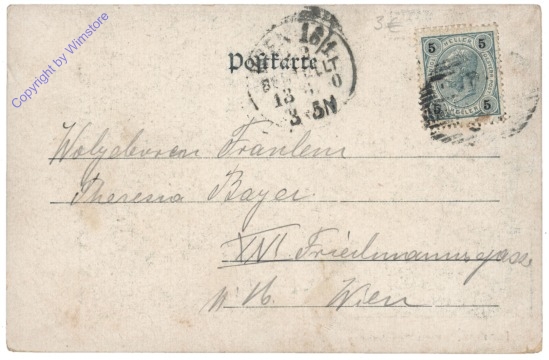 copyright by Wimstore
3 €
Postkarte
WIEN 16/1
BESTELLT
13 0
3-5N
5 5
HELLER HELLER
5 5
Wolgeboren Fraulein
Theresia Bayer
XVI Friedmanngasse
Wien